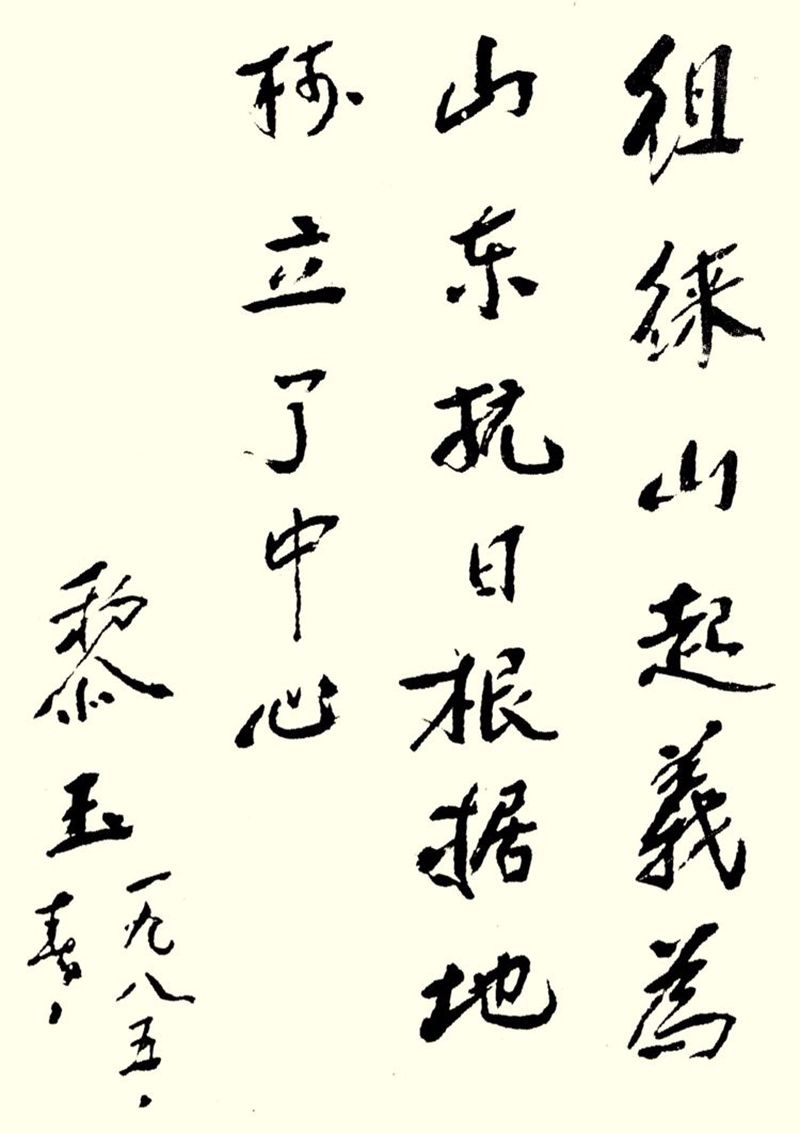 徂徕山起義為
山东抗日根据地
树立了中心
黎玉
一九八五、
春、